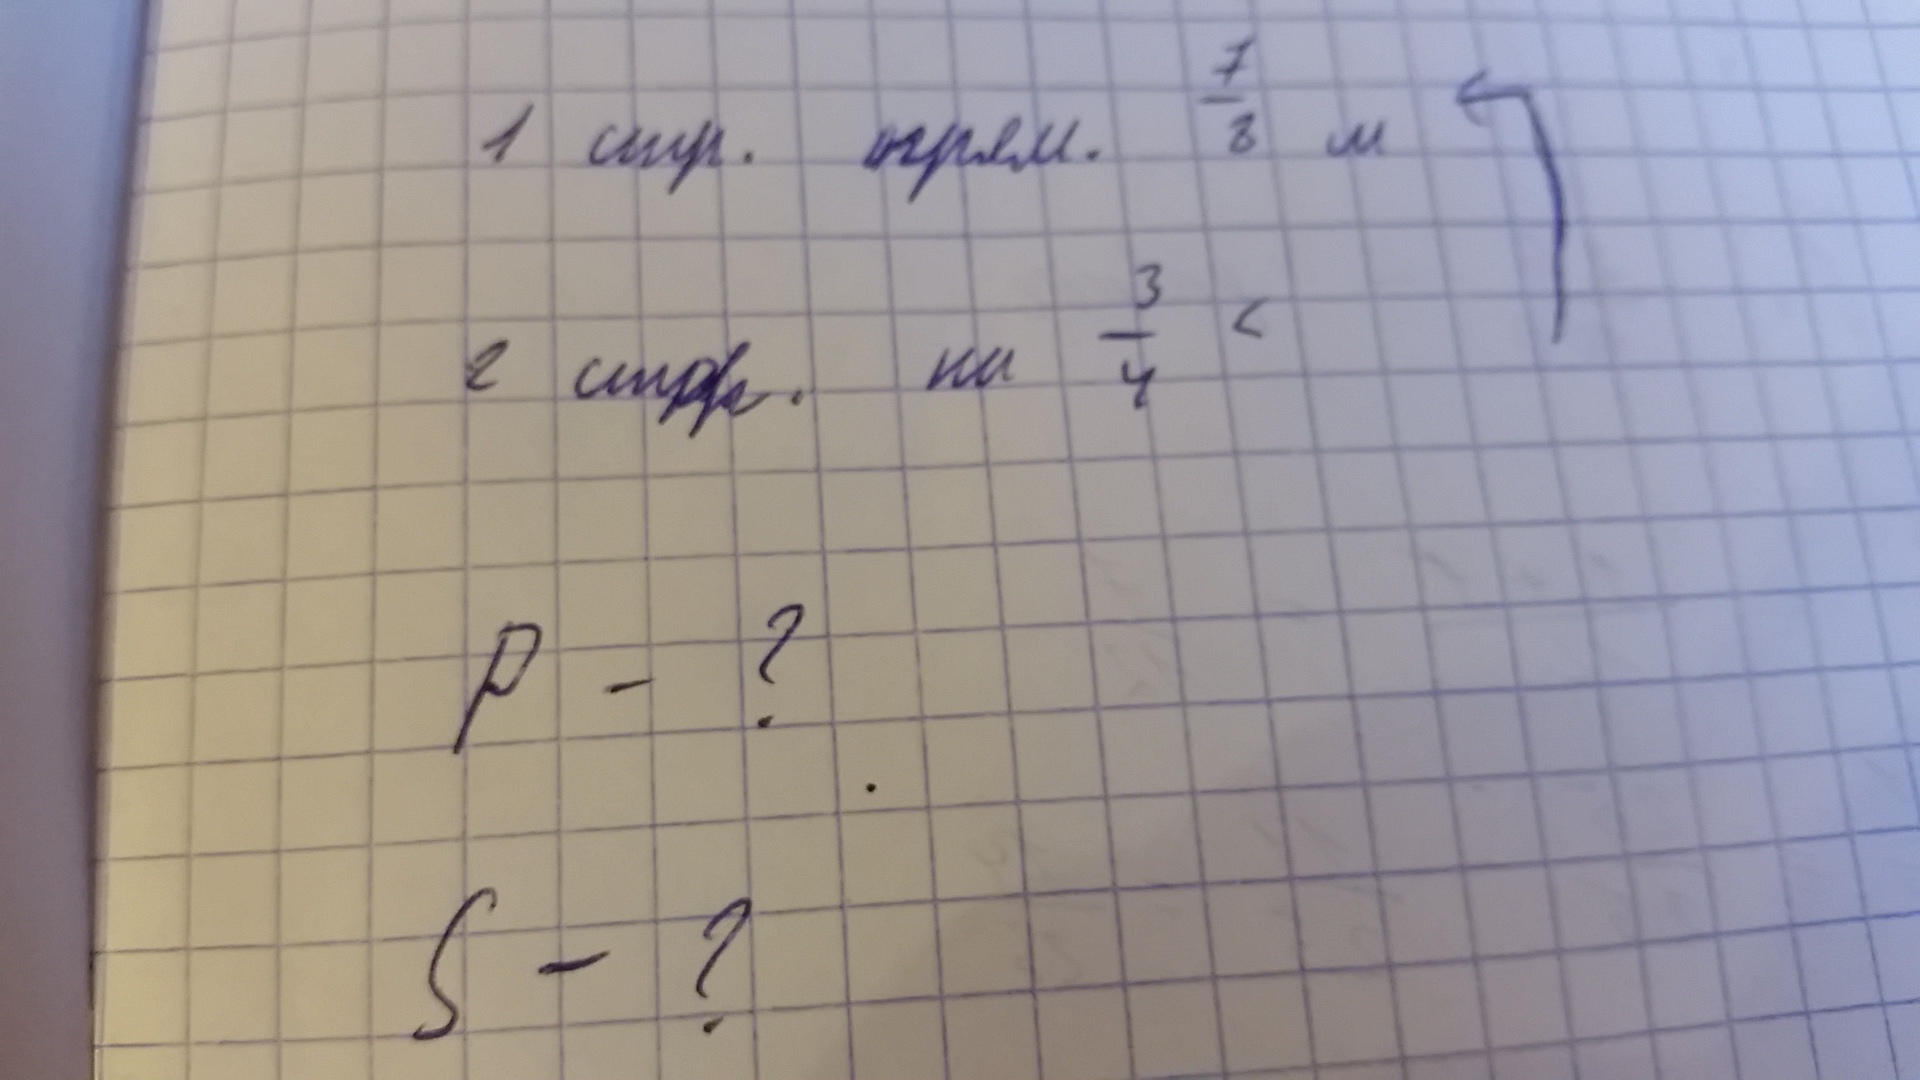 1 стр. прям. 7/8 м
2 стр. на 3/4 <
P - ?
S - ?